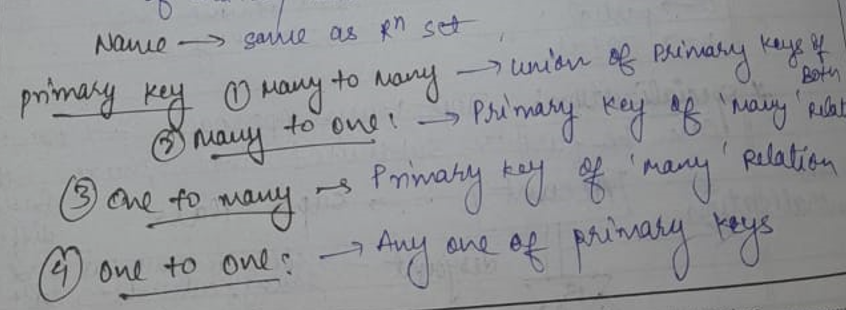 Name → same as Rⁿ set
primary key ① Many to Many → union of primary keys of Both
② Many to one: → Primary key of 'many' Relat
③ one to many → Primary key of 'many' Relation
④ one to one: → Any one of primary keys